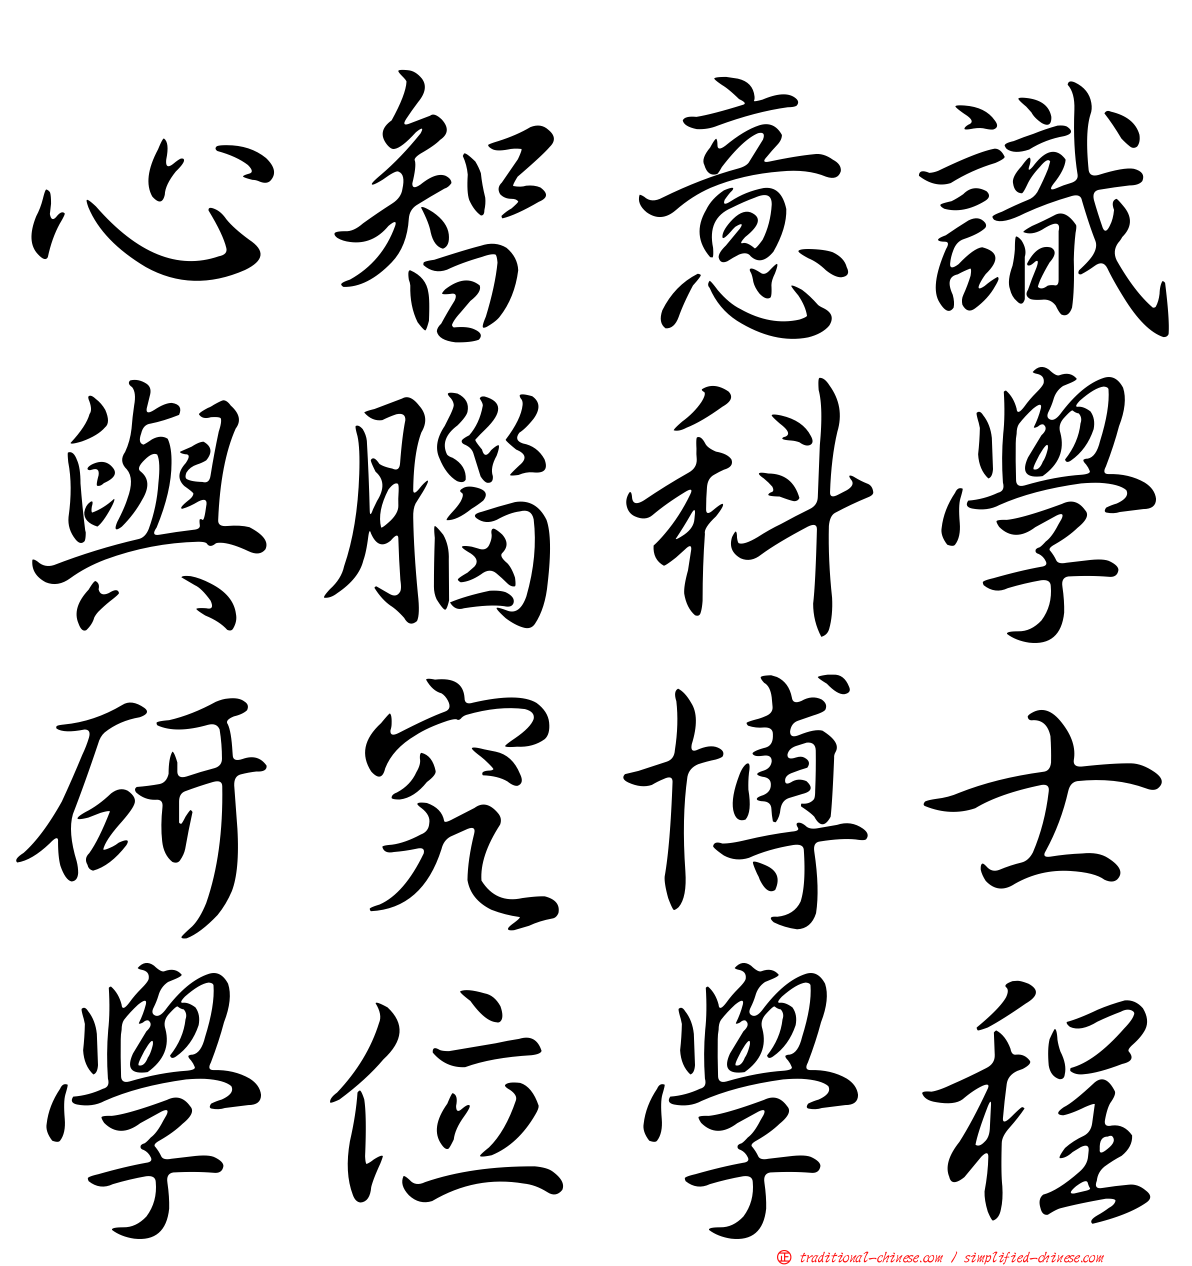 心智意識
與腦科學
研究博士
學位學程
正 traditional-chinese.com / simplified-chinese.com